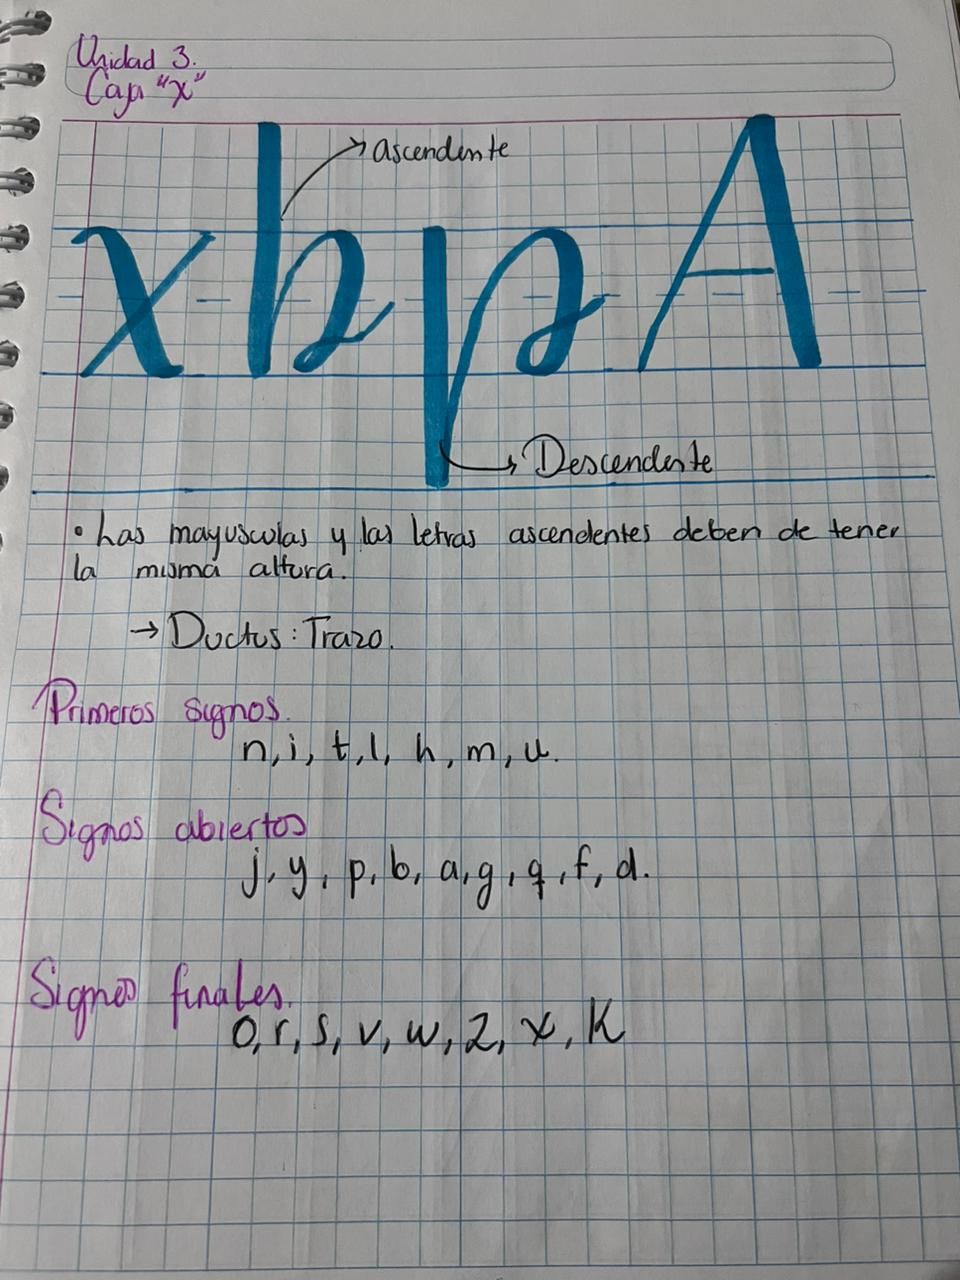 Unidad 3.
Caja "x"
ascendente
x b p A
Descendente
• Las mayusculas y las letras ascendentes deben de tener
la misma altura.
→ Ductus: Trazo.
Primeros signos.
n, i, t, l, h, m, u.
Signos abiertos
j, y, p, b, a, g, q, f, d.
Signos finales.
o, r, s, v, w, z, x, k